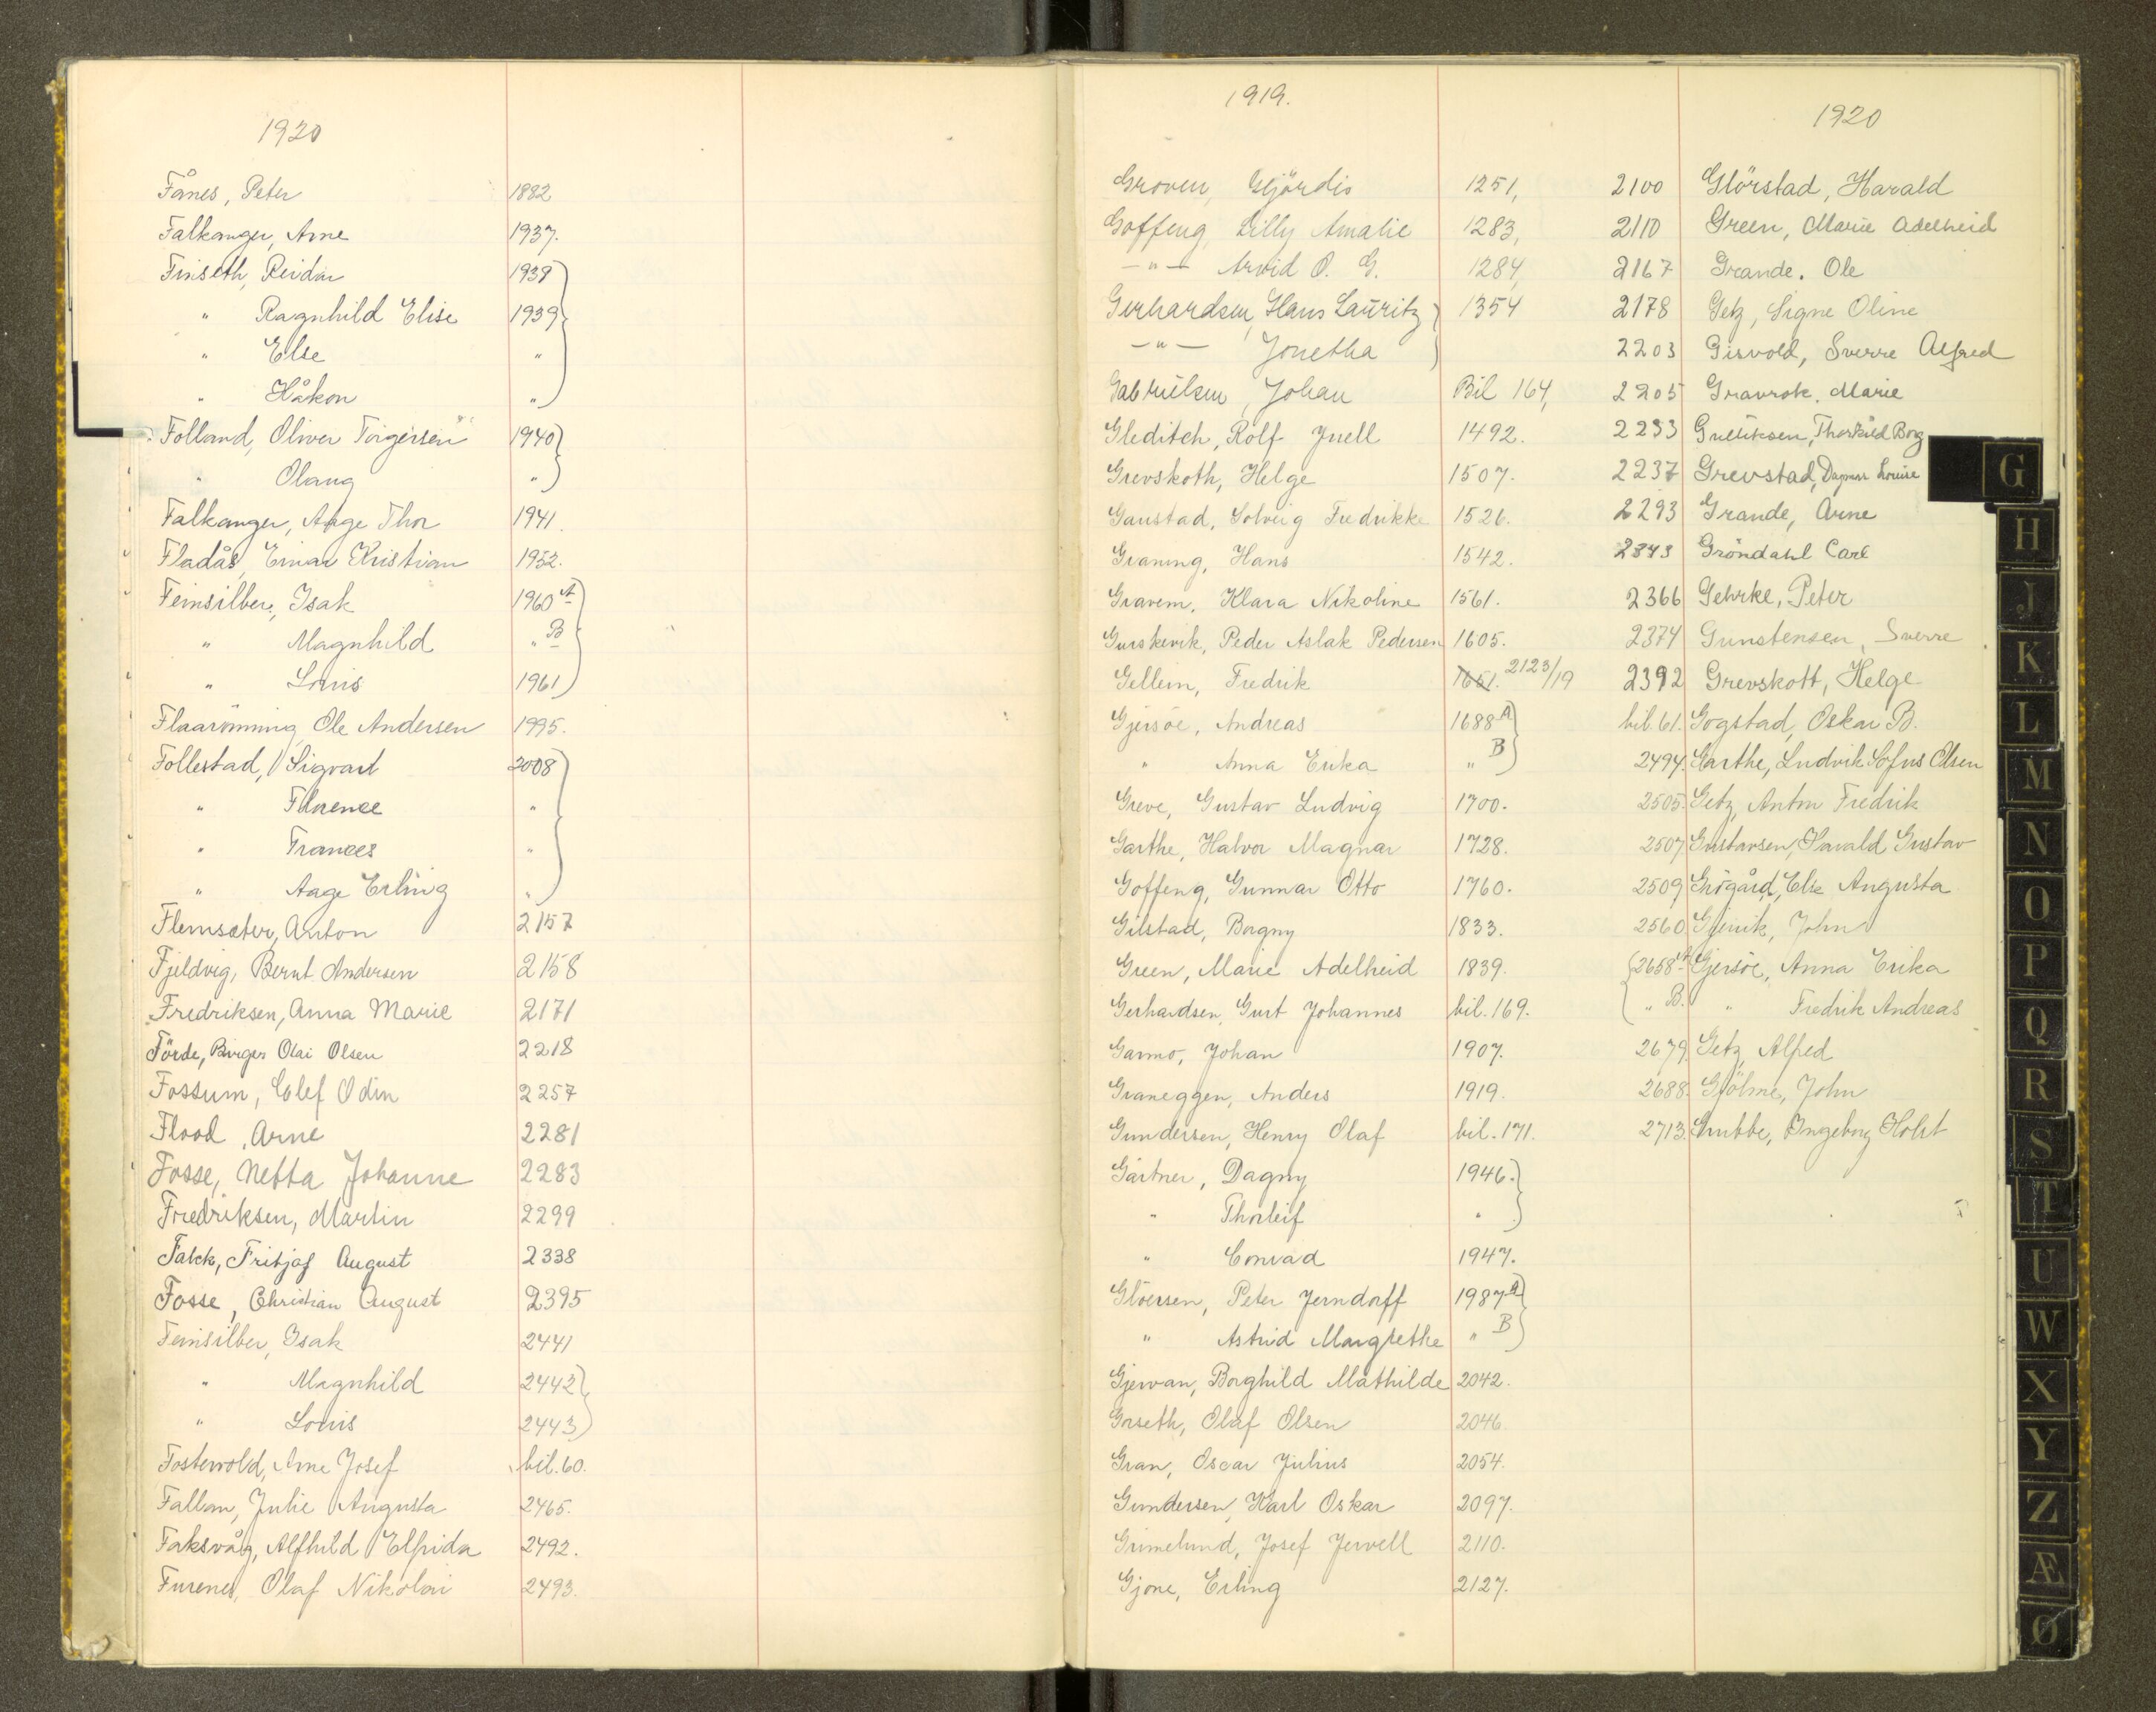 1920
Fånes, Peter 1882
Falkanger, Arne 1937.
Finseth, Reidar 1939
" Ragnhild Elise 1939
" Else "
" Håkon "
Folland, Oliver Torgersen 1940
" Olaug "
Falkanger, Aage Thor 1941.
Fladås, Einar Kristian 1952.
Feinsilber, Isak 1960 A
" Magnhild " B
" Louis 1961
Flaarönning, Ole Andersen 1995.
Follestad, Sigvart 2008
" Florence "
" Frances "
" Aage Erling "
Flemsæter, Anton 2157
Fjeldvig, Bernt Andersen 2158
Fredriksen, Anna Marie 2171
Förde, Birger Olai Olsen 2218
Fossum, Elef Odin 2257
Flood, Arne 2281
Fosse, Netta Johanne 2283
Fredriksen, Martin 2299
Falck, Fritjof August 2338
Fosse, Christian August 2395
Feinsilber, Isak 2441
" Magnhild 2442
" Louis 2443
Fostervold, Arne Josef bil. 60.
Fallan, Julie Augusta 2465.
Faksvåg, Alfhild Elfrida 2492.
Furenes, Olaf Nikolai 2493.
1919.
Groven, Gjördis 1251,
Goffeng, Lilly Amalie 1283,
—"— Arvid O. G. 1284,
Gerhardsen, Hans Lauritz 1354
—"— Jonetha
Gabrielsen, Johan Bil 164,
Gleditch, Rolf Juell 1492.
Grevskoth, Helge 1507.
Ganstad, Solveig Fredrikke 1526.
Graning, Hans 1542.
Gravem, Klara Nikoline 1561.
Gurskevik, Peder Aslak Pedersen 1605.
Gellein, Fredrik 1651. 2123/19
Gjersøe, Andreas 1688 A
" Anna Erika " B
Greve, Gustav Ludvig 1700.
Garthe, Halvor Magnar 1728.
Goffeng, Gunnar Otto 1760.
Gilstad, Borgny 1833.
Green, Marie Adelheid 1839.
Gerhardsen, Gurt Johannes bil. 169.
Garmo, Johan 1907.
Graneggen, Anders 1919.
Gundersen, Henry Olaf bil. 171.
Gärtner, Dagny 1946.
" Thorleif "
" Conrad 1947.
Glöersen, Peter Jerndorff 1987 A
" Astrid Margrethe " B
Gjervan, Borghild Mathilde 2042.
Grseth, Olaf Olsen 2046
Gran, Oscar Julius 2054.
Gundersen, Karl Oskar 2097.
Grimelund, Josef Jervell 2110.
Gjone, Erling 2127.
1920
2100 Glörstad, Harald
2110 Green, Marie Adelheid
2167 Grande, Ole
2178 Getz, Signe Oline
2203 Gisvold, Sverre Alfred
2205 Gravrok, Marie
2233 Gulliksen, Thorkild Borg
2237 Grevstad, Dagmar Louise
2293 Grande, Arne
2343 Gröndahl Carl
2366 Gehrke, Peter
2374 Gunstensen, Sverre
2392 Grevskott, Helge
bil. 61. Gogstad, Oskar B.
2494. Garthe, Ludvik Sofus Olsen
2505. Getz, Anton Fredrik
2507 Gustavsen, Harald Gustav
2509 Grögård, Elie Augusta
2560 Gjervik, John
2658 A Gjersöe, Anna Erika
" B. " Fredrik Andreas
2679 Getz, Alfred
2688. Gjölme, John
2713. Grubbe, Ingeborg Holst
G
H
J
K
L
M
N
O
P
Q
R
S
T
U
W
X
Y
Z
Æ
Ø